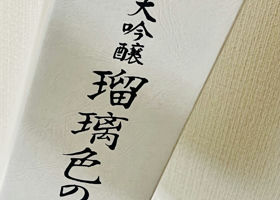 大吟醸
瑠璃色の